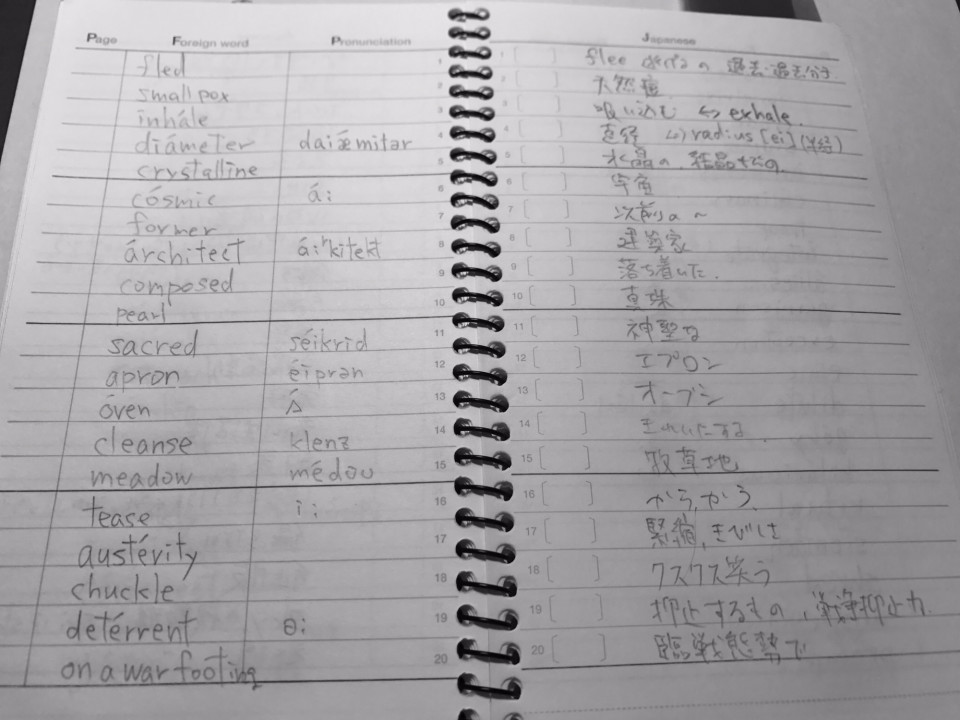 Page Foreign word Pronunciation Japanese
fled 1 [ ] flee の 過去・過去分詞
smallpox 2 [ ] 天然痘
inhále 3 [ ] 吸い込む ↔ exhale.
diámeter daiǽmitər 4 [ ] 直径 ↔ radius [ei] (半径)
crystalline 5 [ ] 水晶の 結晶
cósmic á: 6 [ ] 宇宙
former 7 [ ] 以前の〜
árchitect á:rkitekt 8 [ ] 建築家
composed 9 [ ] 落ち着いた.
pearl 10 [ ] 真珠
sacred séikrid 11 [ ] 神聖な
apron éiprən 12 [ ] エプロン
óven ʌ́ 13 [ ] オーブン
cleanse klenz 14 [ ] きれいにする.
meadow médou 15 [ ] 牧草地
tease i: 16 [ ] からかう.
austérity 17 [ ] 緊縮,きびしさ
chuckle 18 [ ] クスクス笑う
detérrent ə: 19 [ ] 抑止するもの、戦争抑止力.
on a war footing 20 [ ] 臨戦態勢で